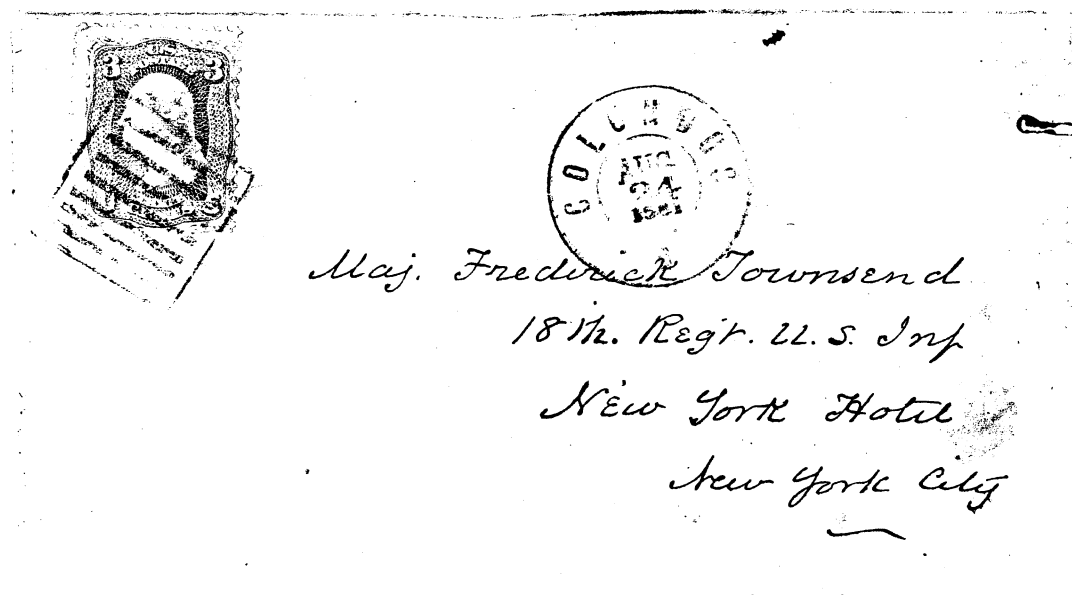 U.S.
3 3
COLUMBUS
AUG
24
1861
Maj. Frederick Townsend
18th. Regt. U.S. Inf
New York Hotel
New York City